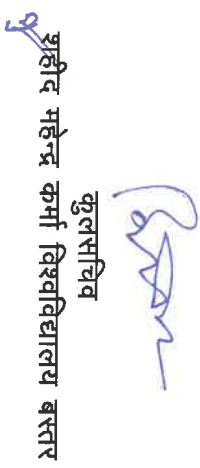 कुलसचिव
शहीद महेन्द्र कर्मा विश्वविद्यालय बस्तर